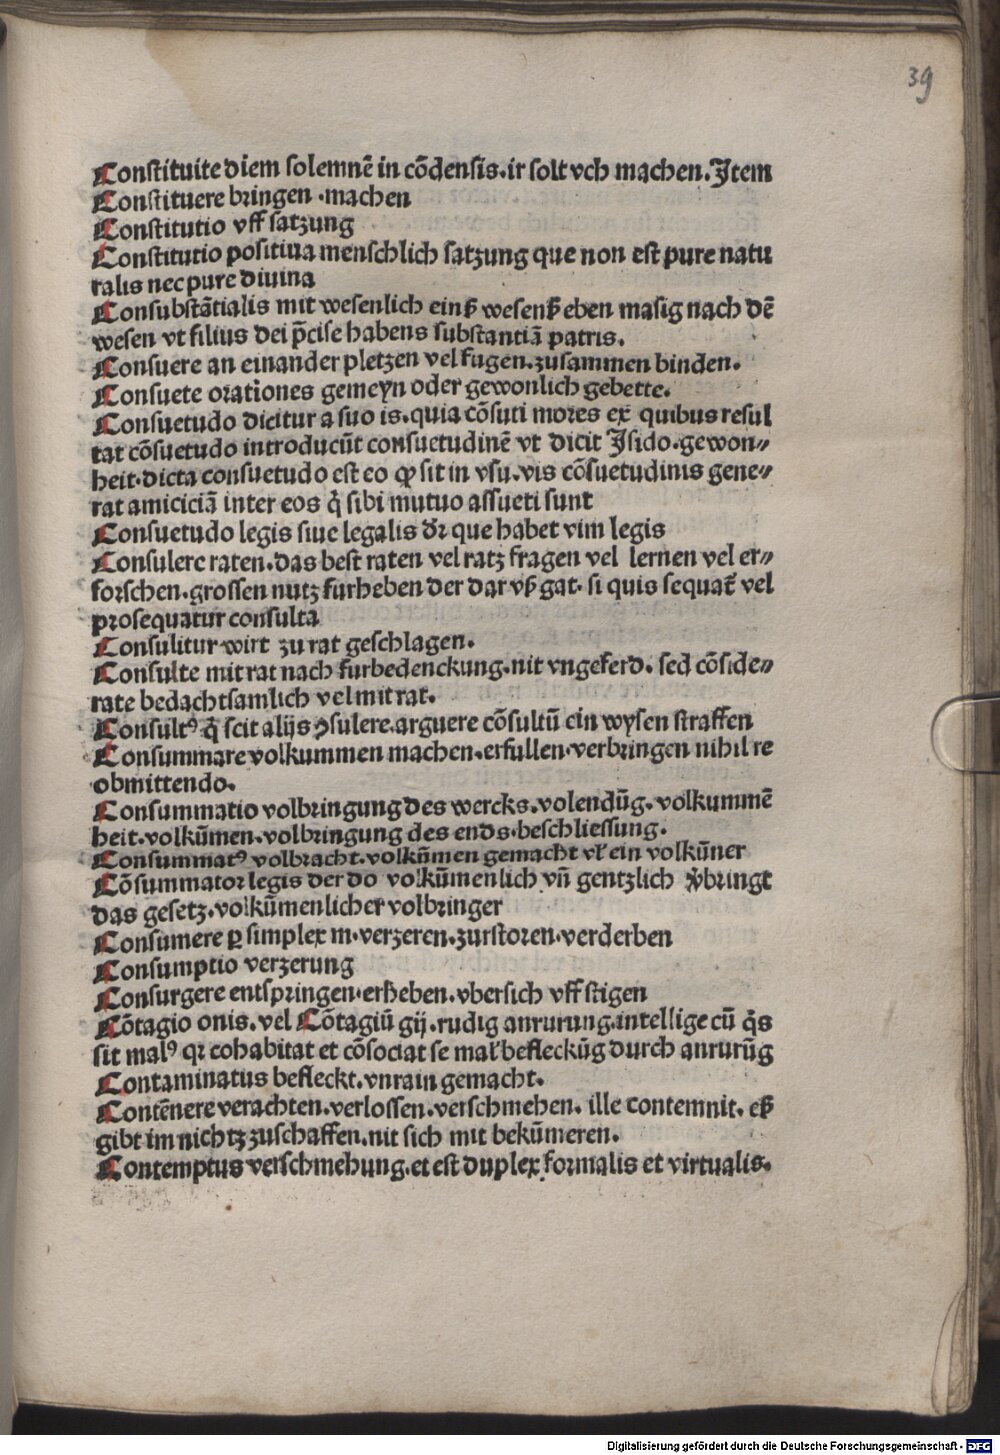 39
Constituite diem solemnē in cōdensis.ir solt vch machen.Item
Constituere bringen .machen
Constitutio vff satzung
Constitutio positiua menschlich satzung que non est pure natu
ralis nec pure diuina
Consubstātialis mit wesenlich einß wesenß eben masig nach dē
wesen vt filius dei p̄cise habens substantiā patris.
Consuere an einander pletzen vel fugen.zusammen binden.
Consuete orationes gemeyn oder gewonlich gebette.
Consuetudo dicitur a suo is.quia cōsuti mores ex quibus resul
tat cōsuetudo introducūt consuetudinē vt dicit Isido.gewon⸗
heit.dicta consuetudo est eo ꝙ sit in vsu.vis cōsuetudinis gene⸗
rat amiciciā inter eos q̄ sibi mutuo assueti sunt
Consuetudo legis siue legalis dꝛ que habet vim legis
Consulere raten.das best raten vel ratz fragen vel lernen vel er⸗
forschen.grossen nutz furheben der dar vß gat. si quis sequat̄ vel
prosequatur consulta
Consulitur wirt zu rat geschlagen.
Consulte mit rat nach furbedenckung.nit vngeferd. sed cōside⸗
rate bedachtsamlich vel mit rat.
Consultꝰ q̄ scit alijs ꝯsulere.arguere cōsultū ein wysen straffen
Consummare volkummen machen.erfullen.verbringen nihil re
obmittendo.
Consummatio volbringung des wercks.volendūg. volkummē
heit.volkūmen.volbringung des ends.beschliessung.
Consummatꝰ volbracht.volkūmen gemacht vł ein volkūner
Cōsummator legis der do volkūmenlich vn̄ gentzlich v̄bringt
das gesetz.volkūmenlicher volbringer
Consumere ꝑ simplex m.verzeren.zurstoren.verderben
Consumptio verzerung
Consurgere entspringen.erheben.vbersich vff stigen
Cōtagio onis.vel Cōtagiū gij.rudig anrurung.intellige cū q̄s
sit malꝰ qꝛ cohabitat et cōsociat se mał befleckūg durch anrurūg
Contaminatus befleckt.vnrain gemacht.
Contēnere verachten.verlossen.verschmehen. ille contemnit. eß
gibt im nichtz zuschaffen.nit sich mit bekūmeren.
Contemptus verschmehung.et est duplex formalis et virtualis.
Digitalisierung gefördert durch die Deutsche Forschungsgemeinschaft - DFG